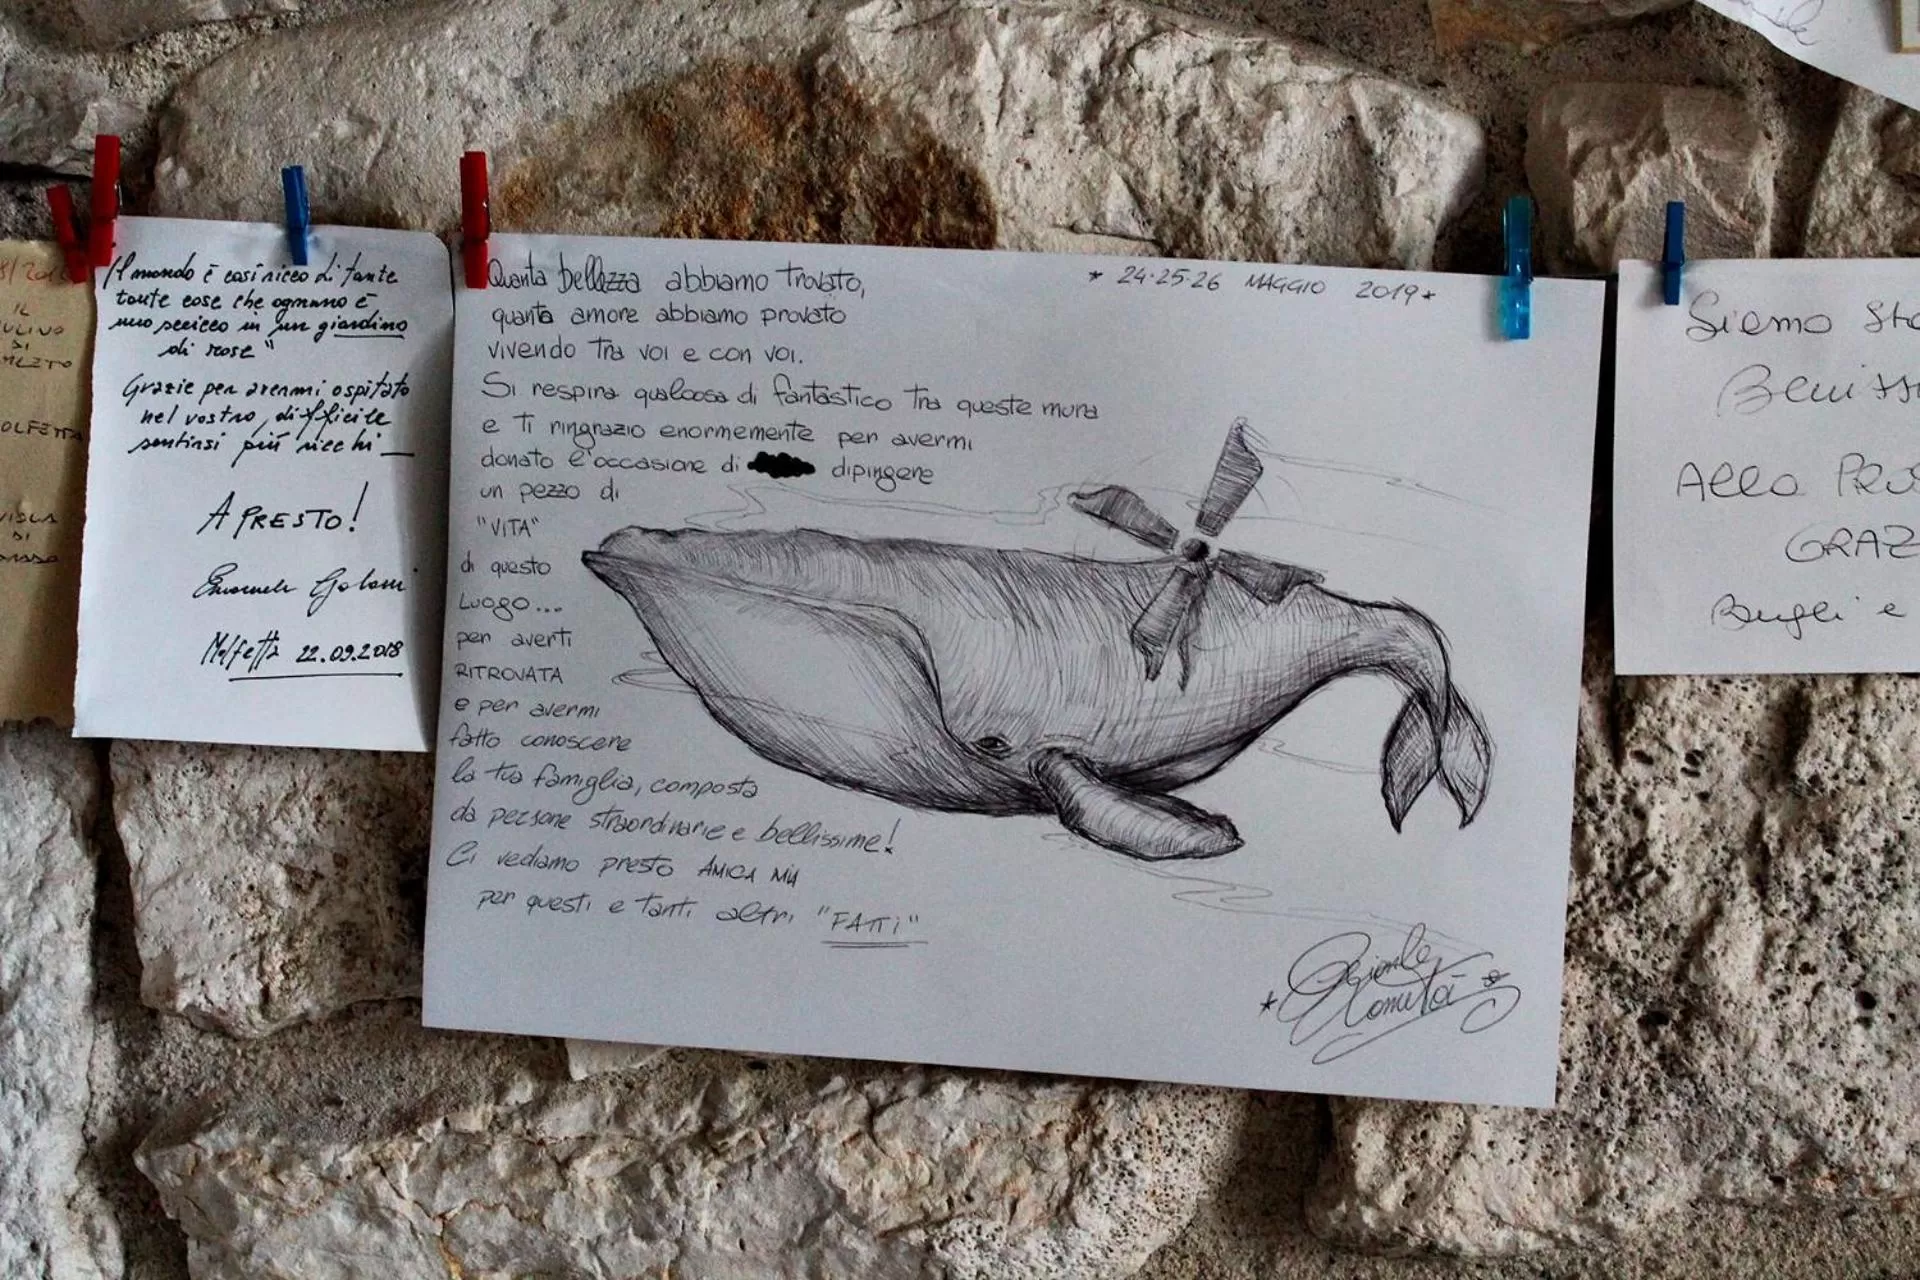 "Il mondo è così ricco di tante
tante cose che ognuno è
uno sceicco in un giardino
di rose"
Grazie per avermi ospitato
nel vostro, difficile
sentirsi più ricchi
A PRESTO!
Emanuele
Molfetta 22.09.2018
Quanta bellezza abbiamo trovato,
quanto amore abbiamo provato
vivendo tra voi e con voi.
Si respira qualcosa di fantastico tra queste mura
e ti ringrazio enormemente per avermi
donato l'occasione di dipingere
un pezzo di
"VITA"
di questo
Luogo...
per averti
RITROVATA
e per avermi
fatto conoscere
la tua famiglia, composta
da persone straordinarie e bellissime!
Ci vediamo presto AMICA MIA
per questi e tanti altri "FATTI"
* 24·25·26 MAGGIO 2019 *
Siamo sta
Beniss
Alla Pro
GRAZ